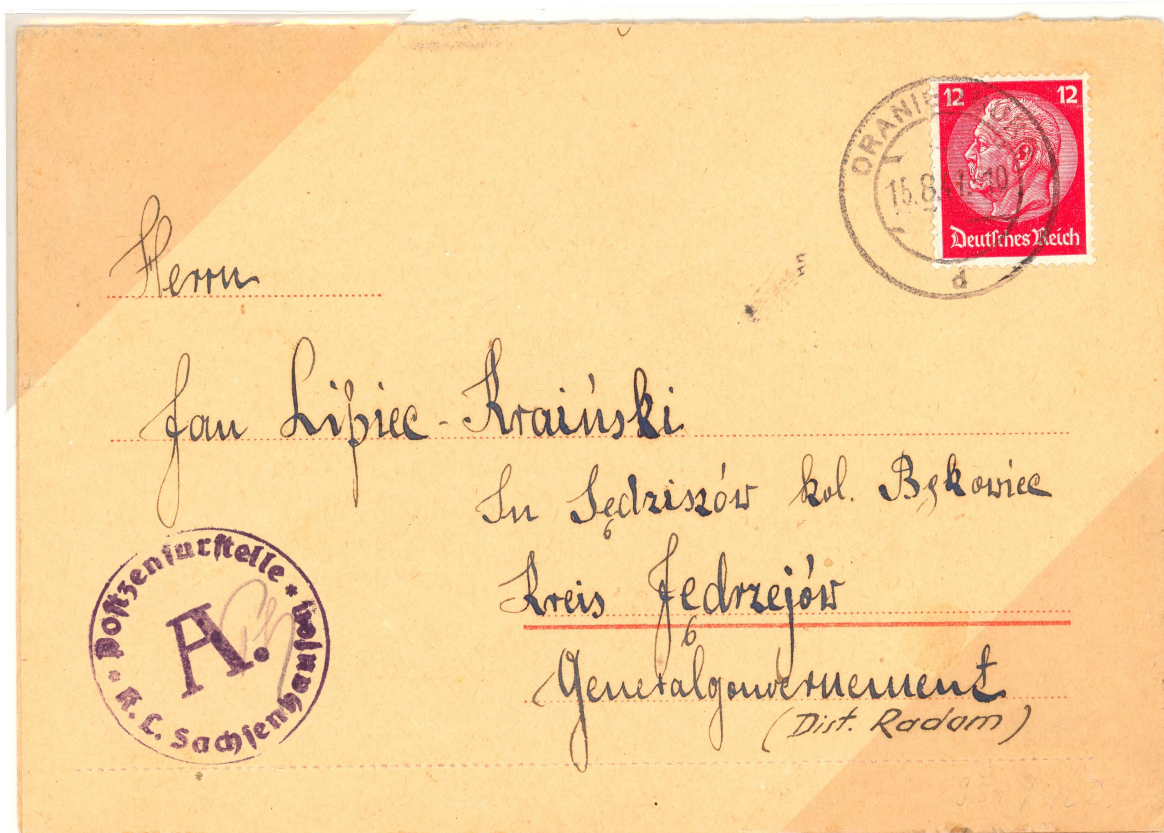 12 12
ORANIE
15.8.41.-10
Deutsches Reich
d
Herrn
Jan Lipiec-Kraiński
In Sędziszów kol. Bękowiec
Kreis Jędrzejów
6
Generalgouvernement
(Dist. Radom)
* Postzensurstelle *
K.L. Sachsenhausen
A.